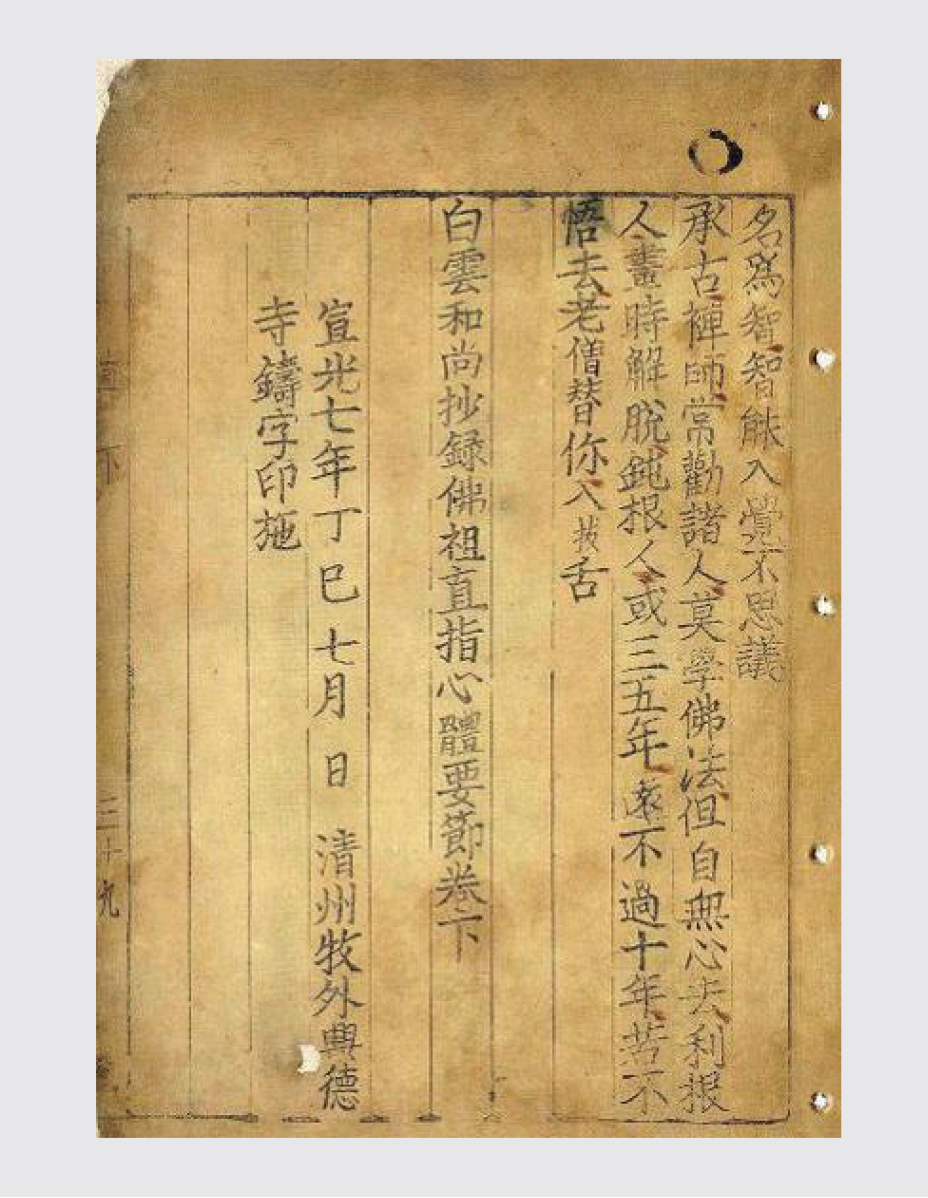 名爲智智能入覺不思議
承古禪師常勸諸人莫學佛法但自無心去利根
人晝時解脫鈍根人或三五年遠不過十年若不
悟去老僧替你入拔舌
白雲和尚抄錄佛祖直指心體要節卷下
宣光七年丁巳七月 日 清州牧外興德
寺鑄字印施
直 下 三十九